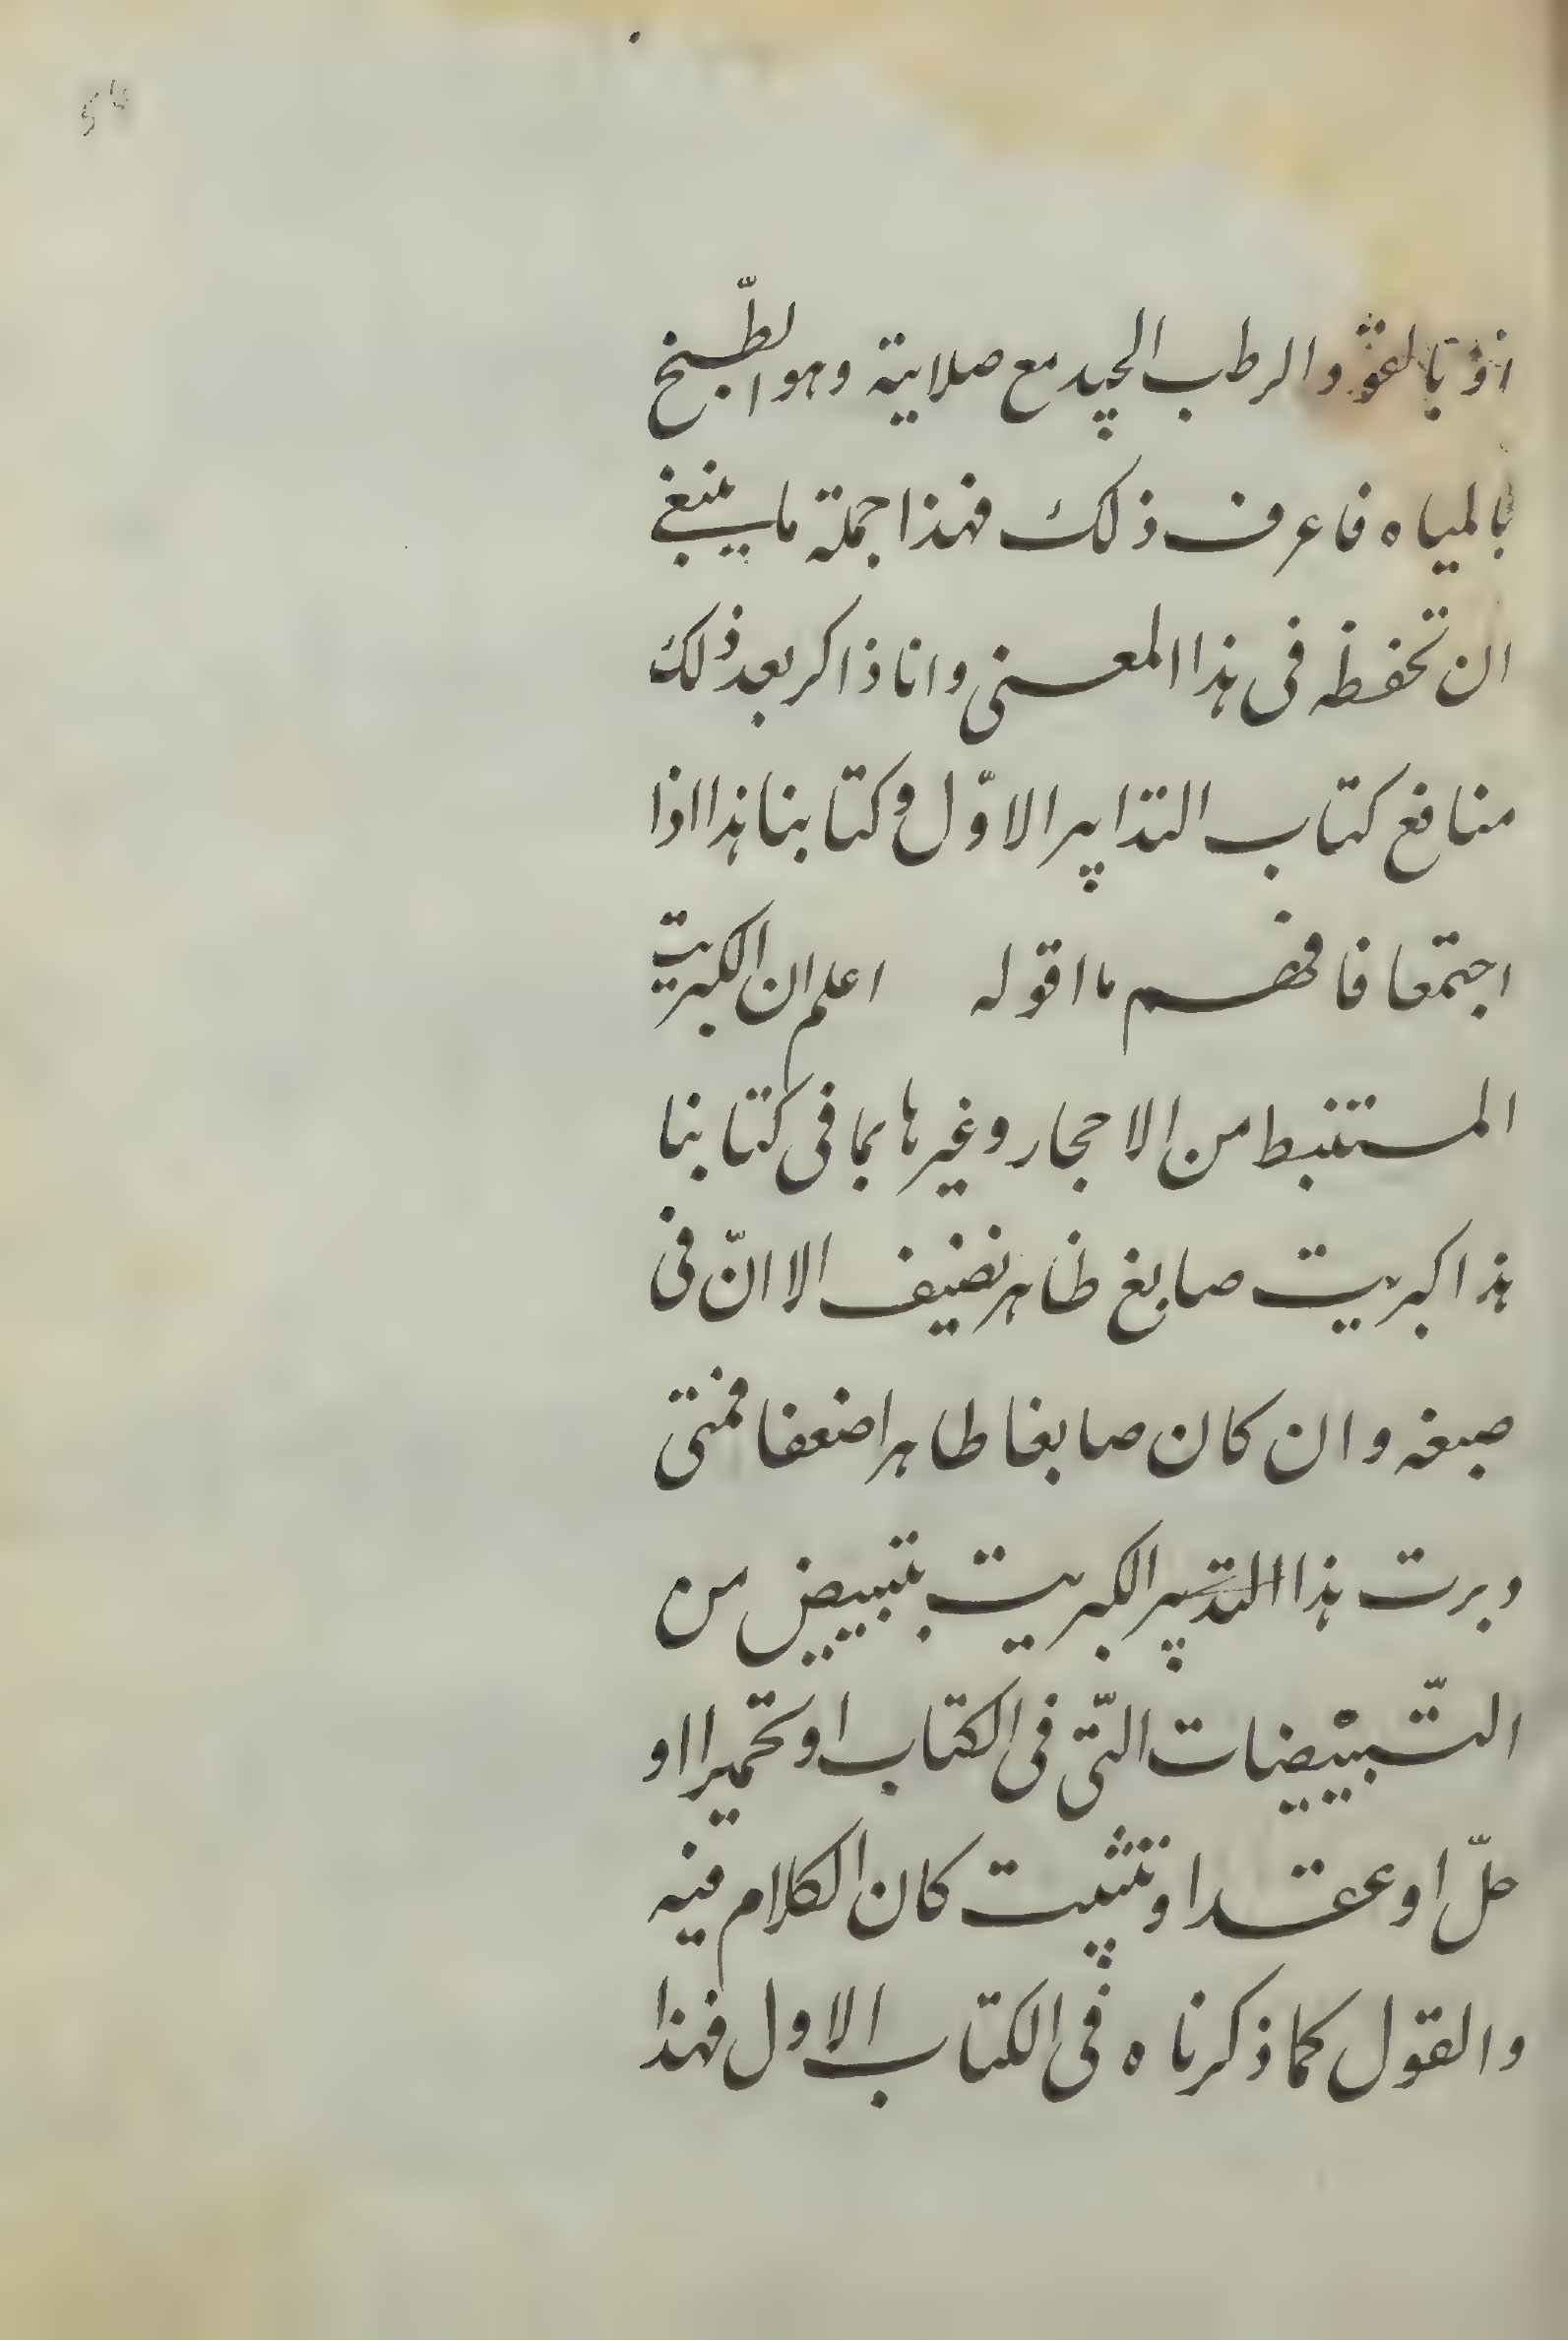 والرطب الجيد مع صلابة وهو الطّبخ
بالمياه فاعرف ذلك فهذا جملة ما ينبغى
ان تحفظه فى هذا المعنى وانا ذاكر بعد ذلك
منافع كتاب التدابير الاوّل وكتابنا هذا اذا
اجتمعا فافهم ما اقوله اعلم ان الكبريت
المستنبط من الاحجار وغيرها بما فى كتابنا
هذا كبريت صابغ ظاهر نضيف الا انّ فى
صبغه وان كان صابغا طاهرا ضعفا فمتى
دبرت هذا التدبير الكبريت بتبييض من
التّبييضات التّى فى الكتاب او تحميرا او
حلّ او عقد او تثبيت كان الكلام فيه
والقول كما ذكرناه فى الكتاب الاول فهذا